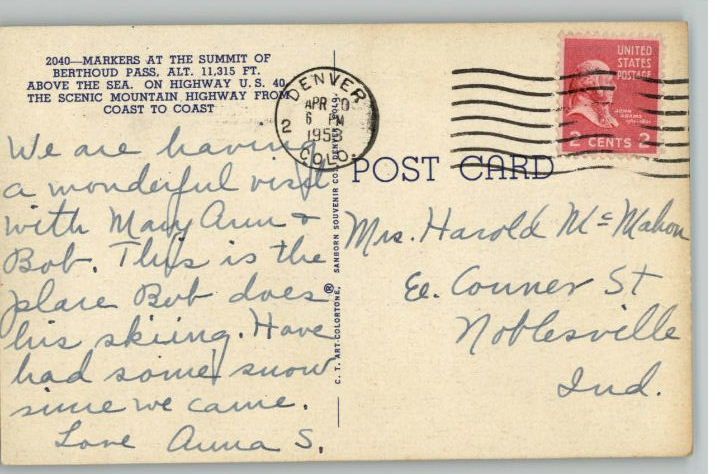 2040—MARKERS AT THE SUMMIT OF
BERTHOUD PASS, ALT. 11,315 FT.
ABOVE THE SEA. ON HIGHWAY U. S. 40,
THE SCENIC MOUNTAIN HIGHWAY FROM
COAST TO COAST
We are having
a wonderful visit
with Mary Ann +
Bob. This is the
place Bob does
his skiing. Have
had some snow
since we came.
Love Anna S.
DENVER
APR
6 PM
195
2
COLO.
C. T. ART-COLORTONE® SANBORN SOUVENIR CO.
UNITED
STATES
POSTAGE
JOHN
ADAMS
2 CENTS 2
POST CARD
Mrs. Harold McMahon
Ee. Conner St
Noblesville
Ind.